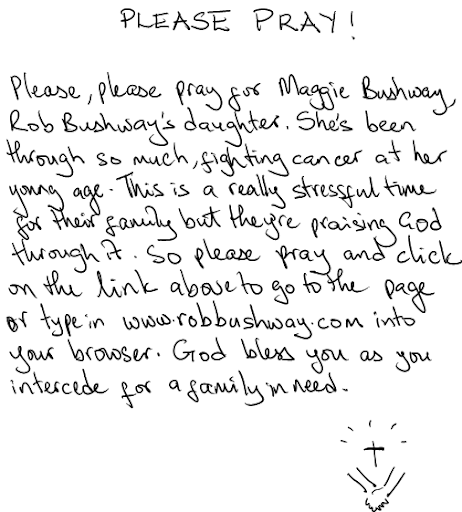 PLEASE PRAY!
Please, please pray for Maggie Bushway,
Rob Bushway's daughter. She's been
through so much, fighting cancer at her
young age. This is a really stressful time
for their family but they're praising God
through it. So please pray and click
on the link above to go to the page
or type in www.robbushway.com into
your browser. God bless you as you
intercede for a family in need.